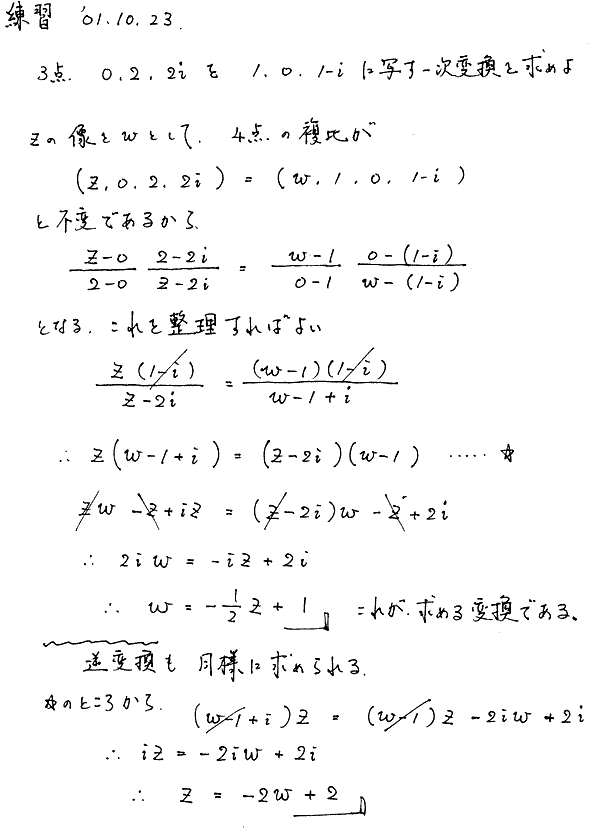 練習 '01.10.23.
3点. 0, 2, 2i を 1, 0, 1-i に写す一次変換を求めよ
zの像をwとして, 4点の複比が
(z, 0, 2, 2i) = (w, 1, 0, 1-i)
と不変であるから,
\frac{z-0}{2-0} \frac{2-2i}{z-2i} = \frac{w-1}{0-1} \frac{0-(1-i)}{w-(1-i)}
となる. これを整理すればよい
\frac{z(1-i)}{z-2i} = \frac{(w-1)(1-i)}{w-1+i}
∴ z(w-1+i) = (z-2i)(w-1) ..... ☆
zw -z+iz = (z-2i)w -z+2i
∴ 2iw = -iz+2i
∴ w = -\frac{1}{2}z+1 これが求める変換である。
逆変換も同様に求められる.
☆のところから. (w-1+i)z = (w-1)z -2iw+2i
∴ iz = -2iw+2i
∴ z = -2w+2